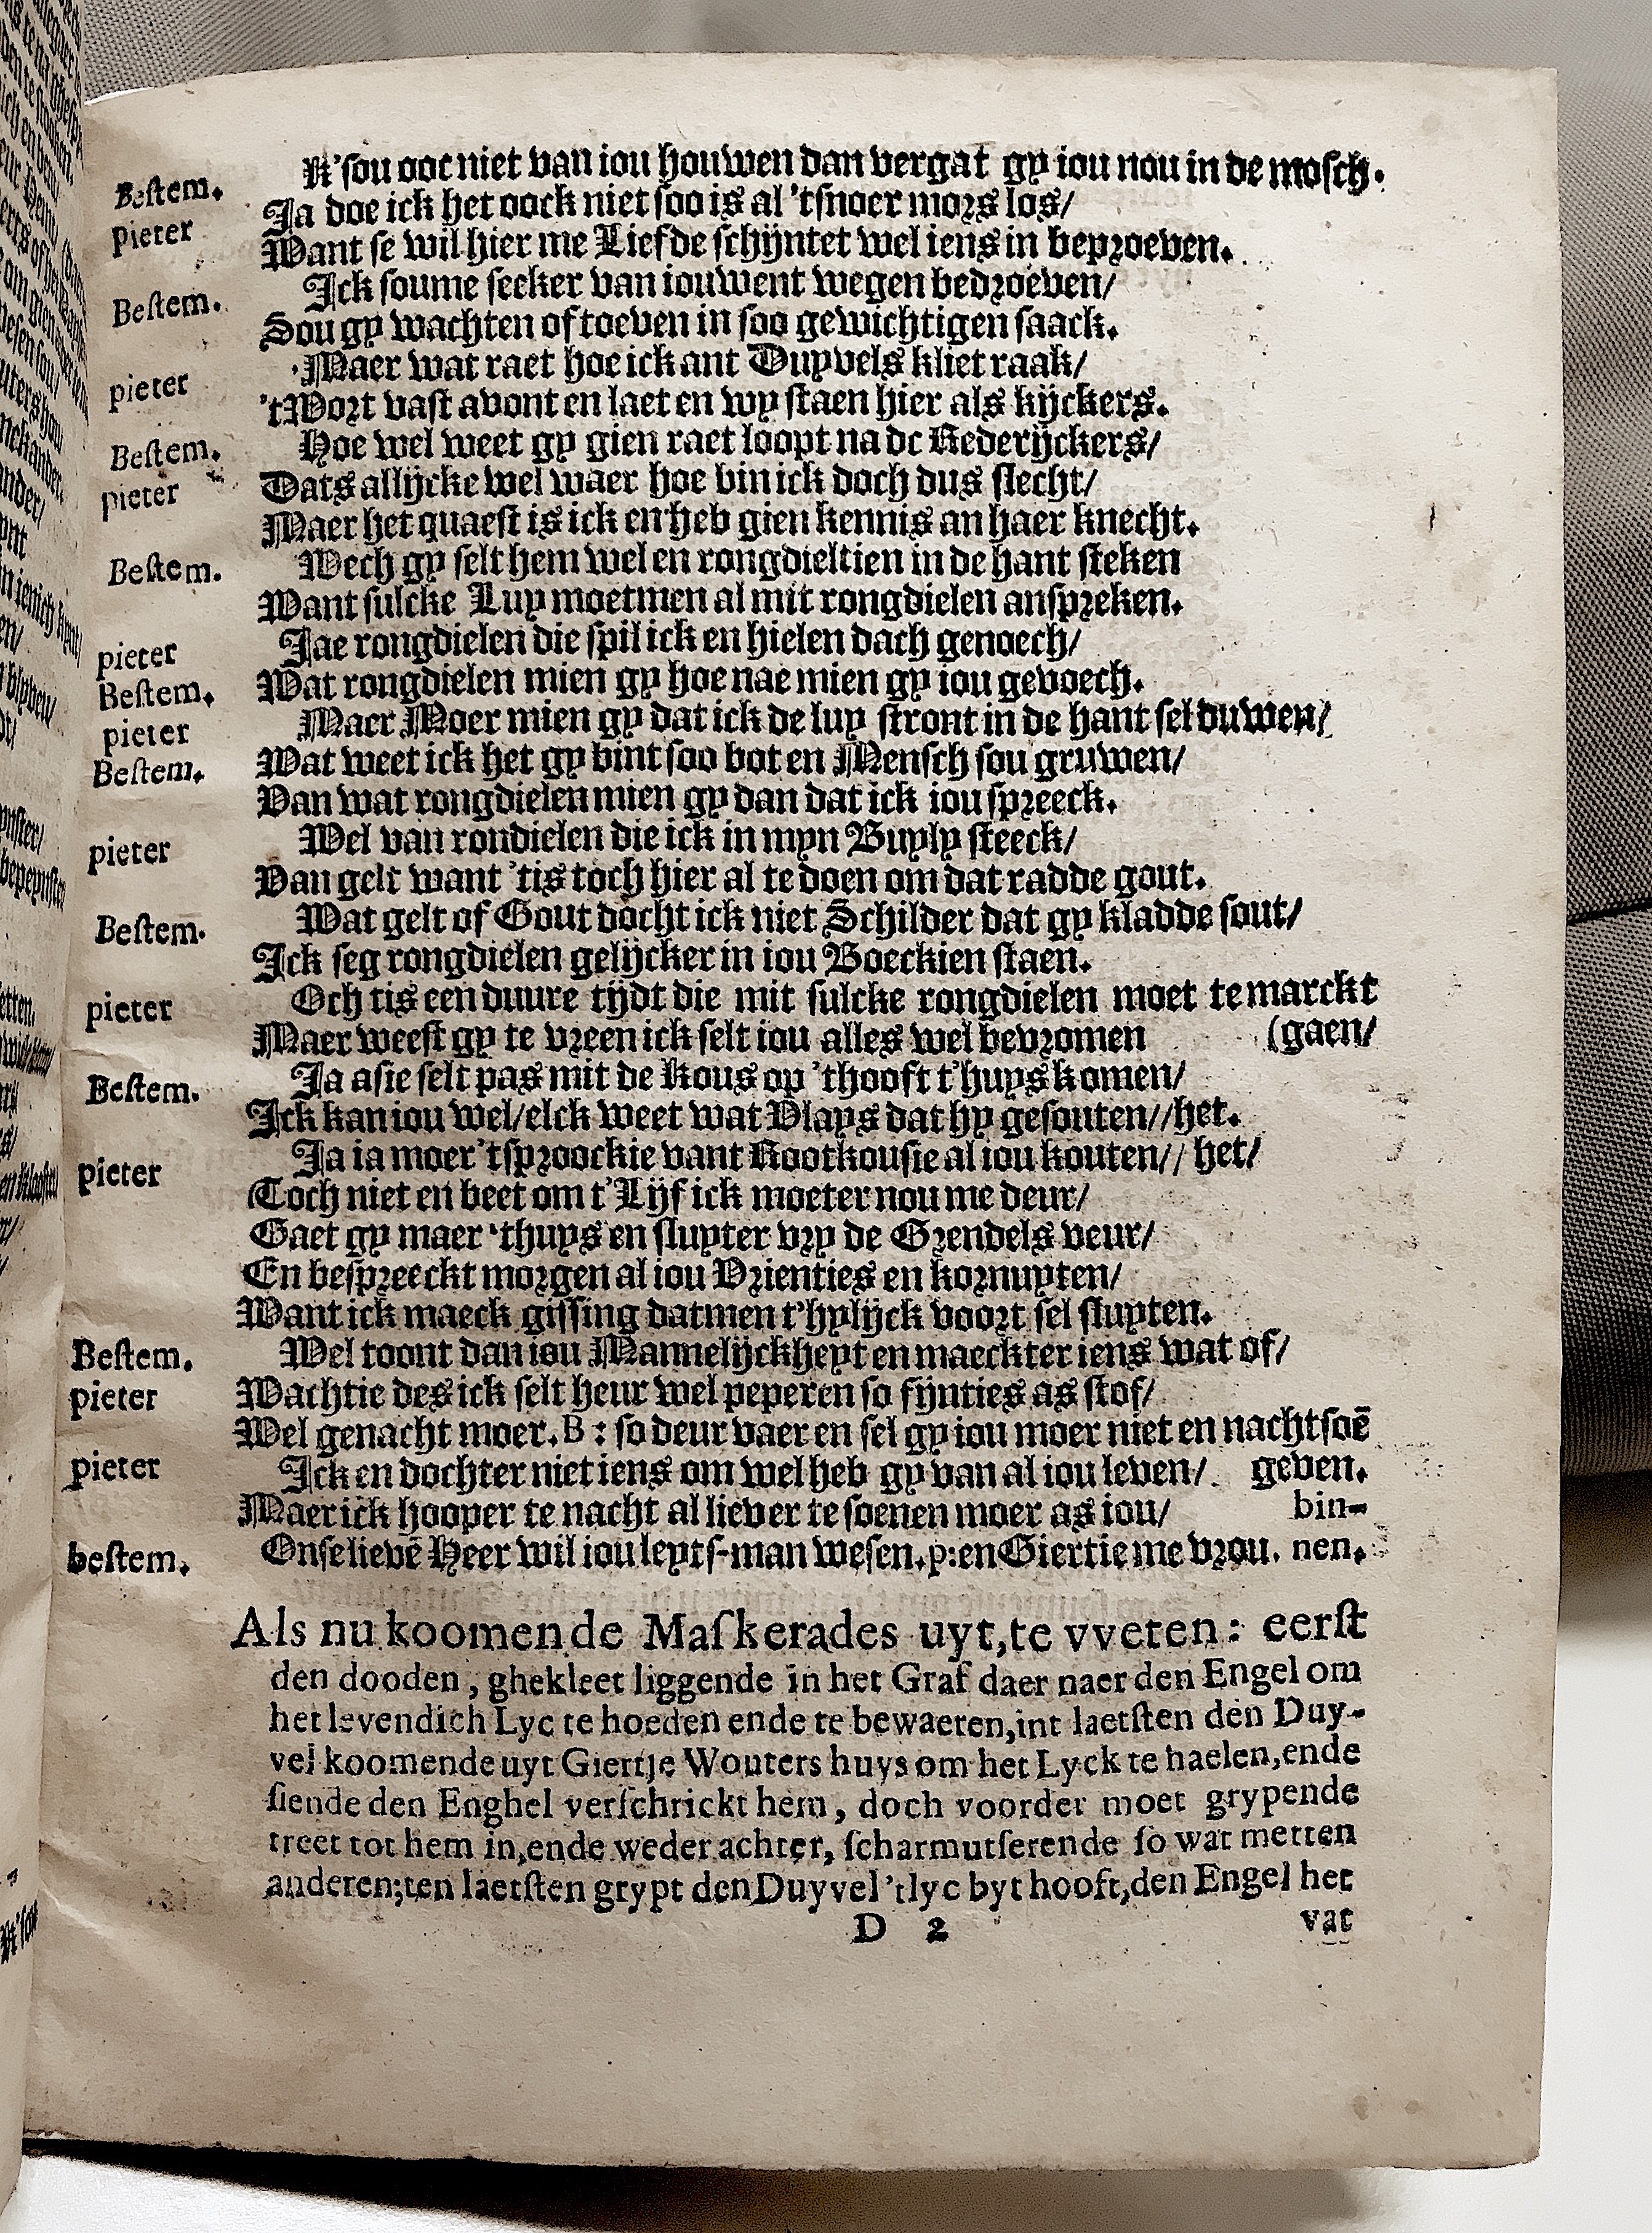 Bestem. K'sou ooc niet van iou houwen dan vergat gy iou nou in de mosch.
pieter Ja doe ick het oock niet soo is al 'tsnoer mors los/
Want se wil hier me Liefde schijntet wel iens in beproeven.
Bestem. Ick soume seeker van iouwent wegen bedroeven/
Sou gy wachten of toeven in soo gewichtigen saack.
pieter Maer wat raet hoe ick ant Duyvels kliet raak/
'tWort vast avont en laet en wy staen hier als kijckers.
Bestem. Hoe wel weet gy gien raet loopt na de Rederijckers/
pieter Dats allijcke wel waer hoe bin ick doch dus slecht/
Maer het quaest is ick en heb gien kennis an haer knecht.
Bestem. Wech gy selt hem wel en rongdieltien in de hant steken
Want sulcke Luy moetmen al mit rongdielen anspreken.
pieter Jae rongdielen die spil ick en hielen dach genoech/
Bestem. Wat rongdielen mien gy hoe nae mien gy iou gevoech.
pieter Maer Moer mien gy dat ick de luy stront in de hant sel duwen/
Bestem. Wat weet ick het gy bint soo bot en Mensch sou gruwen/
Van wat rongdielen mien gy dan dat ick iou spreeck.
pieter Wel van rondielen die ick in myn Buyly steeck/
Van gelt want 'tis toch hier al te doen om dat radde gout.
Bestem. Wat gelt of Gout docht ick niet Schilder dat gy kladde sout/
Ick seg rongdielen gelijcker in iou Boeckien staen.
pieter Och tis een duure tijdt die mit sulcke rongdielen moet te marckt
Maer weest gy te vreen ick selt iou alles wel bevromen (gaen/
Bestem. Ja asie selt pas mit de Kous op 'thooft t'huys komen/
Ick kan iou wel/elck weet wat Vlays dat hy gesouten//het.
pieter Ja ia moer 'tsproockie vant Rootkousie al iou kouten// het/
Toch niet en beet om t'Lijf ick moeter nou me deur/
Gaet gy maer 'thuys en sluyter vry de Grendels veur/
En bespreeckt morgen al iou Vrienties en kornuyten/
Want ick maeck gissing datmen t'hylijck voort sel sluyten.
Bestem. Wel toont dan iou Mannelijckheyt en maeckter iens wat of/
pieter Wachtie des ick selt heur wel peperen so fijnties as stof/
Wel genacht moer. B : so deur vaer en sel gy iou moer niet en nachtsoē
pieter Ick en dochter niet iens om wel heb gy van al iou leven/. geven.
Maer ick hooper te nacht al liever te soenen moer as iou/ bin-
bestem. Onselievē Heer wil iou leyts-man wesen.p:en Giertie me vrou. nen.
Als nu koomen de Maskerades uyt,te vveten: eerst
den dooden, ghekleet liggende in het Graf daer naer den Engel om
het levendich Lyc te hoeden ende te bewaeren,int laetsten den Duy-
vel koomende uyt Giertje Wouters huys om het Lyck te haelen,ende
siende den Enghel verschrickt hem, doch voorder moet grypende
treet tot hem in,ende weder achter, scharmutserende so wat metten
anderen;ten laetsten grypt den Duyvel 'tlyc byt hooft,den Engel het
D 2 vat